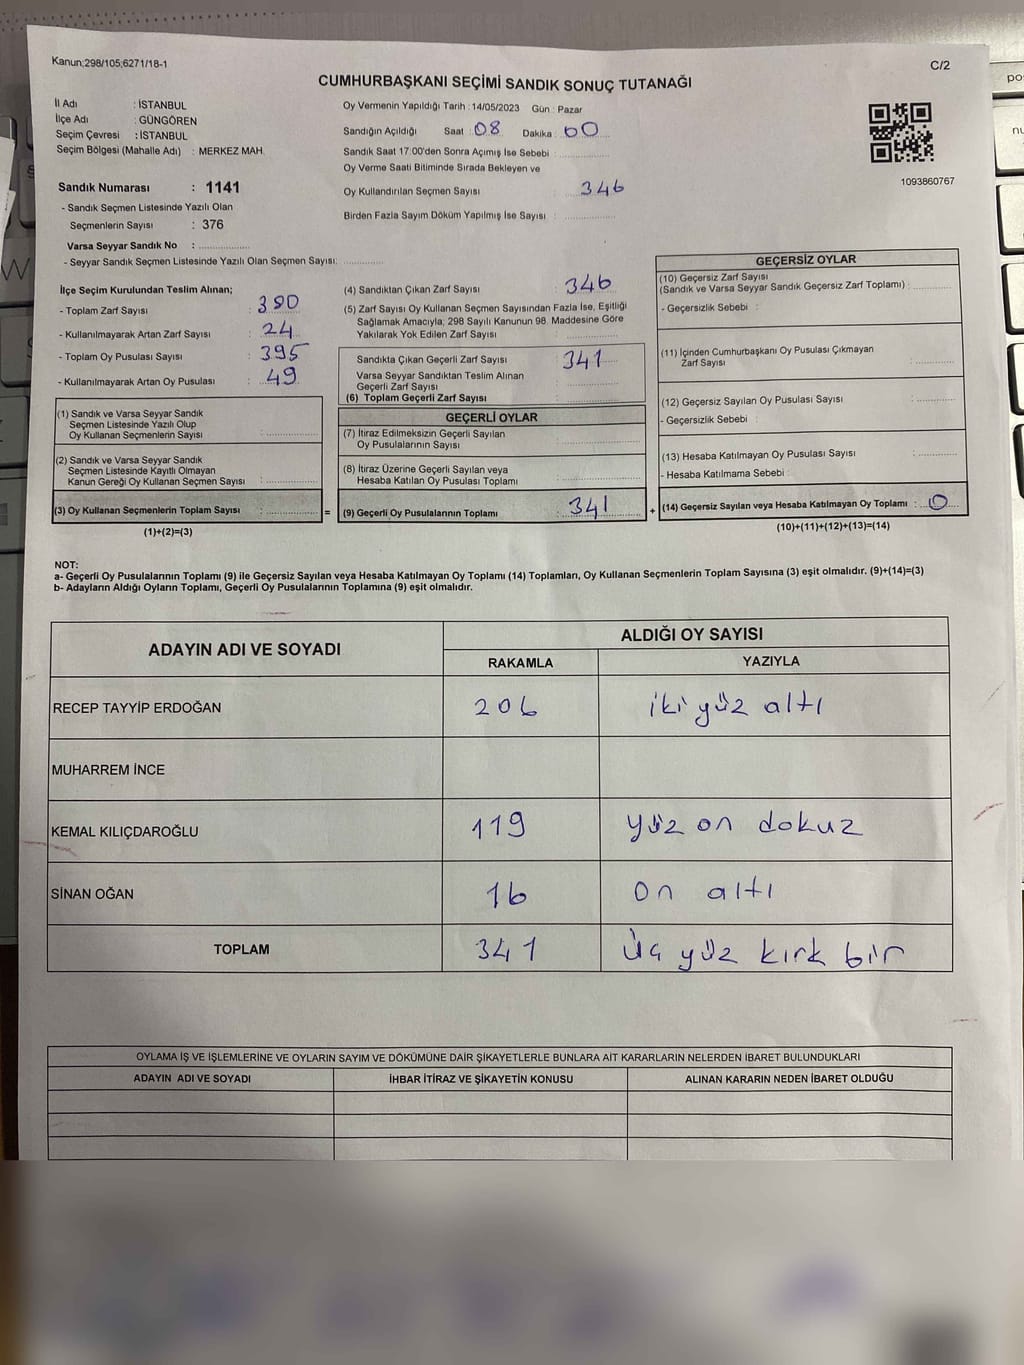 Kanun;298/105;6271/18-1
C/2
CUMHURBAŞKANI SEÇİMİ SANDIK SONUÇ TUTANAĞI
İl Adı : İSTANBUL
İlçe Adı : GÜNGÖREN
Seçim Çevresi : İSTANBUL
Seçim Bölgesi (Mahalle Adı) : MERKEZ MAH.
Sandık Numarası : 1141
- Sandık Seçmen Listesinde Yazılı Olan
Seçmenlerin Sayısı : 376
Varsa Seyyar Sandık No :
- Seyyar Sandık Seçmen Listesinde Yazılı Olan Seçmen Sayısı:
Oy Vermenin Yapıldığı Tarih : 14/05/2023 Gün : Pazar
Sandığın Açıldığı Saat : 08 Dakika : 00
Sandık Saat 17:00'den Sonra Açımış İse Sebebi :
Oy Verme Saati Bitiminde Sırada Bekleyen ve
Oy Kullandırılan Seçmen Sayısı : 346
Birden Fazla Sayım Döküm Yapılmış İse Sayısı :
1093860767
İlçe Seçim Kurulundan Teslim Alınan;
- Toplam Zarf Sayısı : 380
- Kullanılmayarak Artan Zarf Sayısı : 24
- Toplam Oy Pusulası Sayısı : 395
- Kullanılmayarak Artan Oy Pusulası : 49
(1) Sandık ve Varsa Seyyar Sandık
Seçmen Listesinde Yazılı Olup
Oy Kullanan Seçmenlerin Sayısı :
(2) Sandık ve Varsa Seyyar Sandık
Seçmen Listesinde Kayıtlı Olmayan
Kanun Gereği Oy Kullanan Seçmen Sayısı :
(3) Oy Kullanan Seçmenlerin Toplam Sayısı : =
(1)+(2)=(3)
(4) Sandıktan Çıkan Zarf Sayısı : 346
(5) Zarf Sayısı Oy Kullanan Seçmen Sayısından Fazla İse, Eşitliği
Sağlamak Amacıyla; 298 Sayılı Kanunun 98. Maddesine Göre
Yakılarak Yok Edilen Zarf Sayısı :
Sandıkta Çıkan Geçerli Zarf Sayısı : 341
Varsa Seyyar Sandıktan Teslim Alınan
Geçerli Zarf Sayısı :
(6) Toplam Geçerli Zarf Sayısı :
GEÇERLİ OYLAR
(7) İtiraz Edilmeksizin Geçerli Sayılan
Oy Pusulalarının Sayısı :
(8) İtiraz Üzerine Geçerli Sayılan veya
Hesaba Katılan Oy Pusulası Toplamı :
(9) Geçerli Oy Pusulalarının Toplamı : 341 +
GEÇERSİZ OYLAR
(10) Geçersiz Zarf Sayısı
(Sandık ve Varsa Seyyar Sandık Geçersiz Zarf Toplamı) :
- Geçersizlik Sebebi :
(11) İçinden Cumhurbaşkanı Oy Pusulası Çıkmayan
Zarf Sayısı :
(12) Geçersiz Sayılan Oy Pusulası Sayısı :
- Geçersizlik Sebebi :
(13) Hesaba Katılmayan Oy Pusulası Sayısı :
- Hesaba Katılmama Sebebi :
(14) Geçersiz Sayılan veya Hesaba Katılmayan Oy Toplamı : 0
(10)+(11)+(12)+(13)=(14)
NOT:
a- Geçerli Oy Pusulalarının Toplamı (9) ile Geçersiz Sayılan veya Hesaba Katılmayan Oy Toplamı (14) Toplamları, Oy Kullanan Seçmenlerin Toplam Sayısına (3) eşit olmalıdır. (9)+(14)=(3)
b- Adayların Aldığı Oyların Toplamı, Geçerli Oy Pusulalarının Toplamına (9) eşit olmalıdır.
ADAYIN ADI VE SOYADI ALDIĞI OY SAYISI
RAKAMLA YAZIYLA
RECEP TAYYİP ERDOĞAN 206 iki yüz altı
MUHARREM İNCE
KEMAL KILIÇDAROĞLU 119 yüz on dokuz
SİNAN OĞAN 16 on altı
TOPLAM 341 üç yüz kırk bir
OYLAMA İŞ VE İŞLEMLERİNE VE OYLARIN SAYIM VE DÖKÜMÜNE DAİR ŞİKAYETLERLE BUNLARA AİT KARARLARIN NELERDEN İBARET BULUNDUKLARI
ADAYIN ADI VE SOYADI İHBAR İTİRAZ VE ŞİKAYETİN KONUSU ALINAN KARARIN NEDEN İBARET OLDUĞU